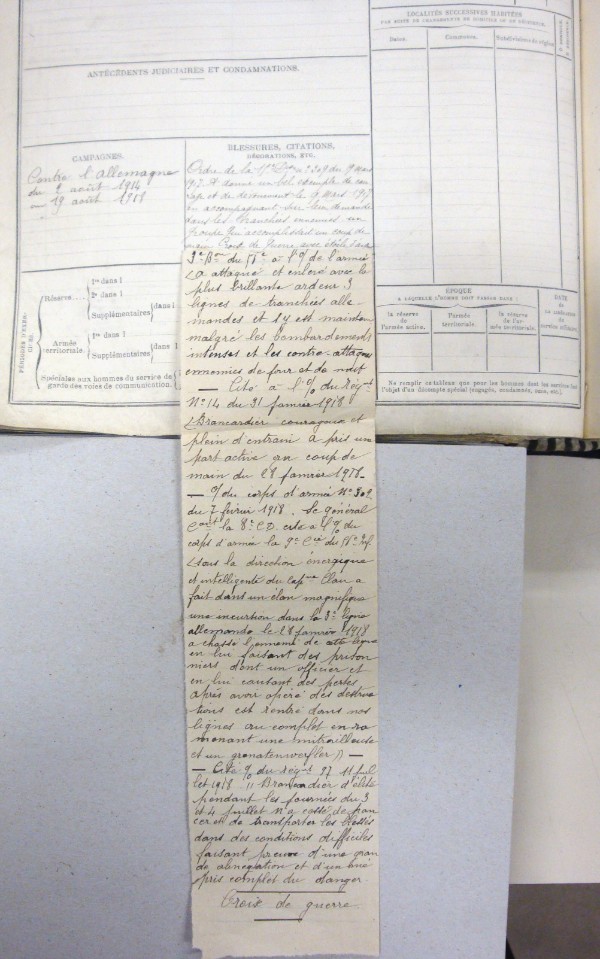 LOCALITÉS SUCCESSIVES HABITÉES
PAR SUITE DE CHANGEMENTS DE DOMICILE OU DE RÉSIDENCE.
Dates.
Communes.
Subdivisions de région.
ANTÉCÉDENTS JUDICIAIRES ET CONDAMNATIONS.
CAMPAGNES.
Contre l'Allemagne
du 2 août 1914
au 19 août 1918
BLESSURES, CITATIONS,
DÉCORATIONS, ETC.
Ordre de la Don n° 209 du 9 mars
1917. A donné un bel exemple de cou
rage et de dévouement le 4 mars 1917
en accompagnant sur leur demande
dans les tranchées ennemies un
groupe qui accomplissait un coup de
main. Croix de Guerre avec étoile
3e Bon du à l'O/ de l'armée
(a attaqué et enlevé avec la
plus brillante ardeur 3
lignes de tranchées alle
mandes et s'y est maintenu
malgré les bombardements
intenses et les contre-attaques
ennemies de jour et de nuit
— Cité à l'O/ du Régnt
N° 14 du 31 janvier 1918
(Brancardier courageux et
plein d'entrain a pris un
part active au coup de
main du 28 janvier 1918_
— O/ du corps d'armée N° 302
du 7 février 1918. Le général
Cant la 8e CD. cite à l'O/ du
corps d'armée la 9e Cie du
(sous la direction énergique
et intelligente du capne Clair a
fait dans un élan magnifique
une incursion dans la 3e ligne
allemande le 28 janvier 1918
a chassé l'ennemi de cette ligne
en lui faisant des prison
niers dont un officier et
en lui causant des pertes,
après avoir opéré des destruc
tions est rentré dans nos
lignes au complet en ra
menant une mitrailleuse
et un granatenwerfler)) —
— Cité O/ du Régnt 97 11 juil
let 1918 " Brancadier d'élite
pendant les journées du 3
et 4 juillet n'a cessé de pan
cer et de transporter les blessés
dans des conditions difficiles
faisant preuve d'une gran
de abnégation et d'un mé
pris complet du danger
Croix de guerre
PÉRIODES D'EXER-
CICES.
Réserve....
1re dans l
2e dans l
Supplémentaires
dans l
Armée
territoriale.
1re dans l
Supplémentaires
dans l
Spéciales aux hommes du service de
garde des voies de communication.
ÉPOQUE
À LAQUELLE L'HOMME DOIT PASSER DANS :
la réserve
de
l'armée active.
l'armée
territoriale.
la réserve
de l'ar-
mée territoriale.
DATE
de
LA LIBÉRATION
du
service militaire.
Ne remplir ce tableau que pour les hommes dont les services font
l'objet d'un décompte spécial (engagés, condamnés, omis, etc.).